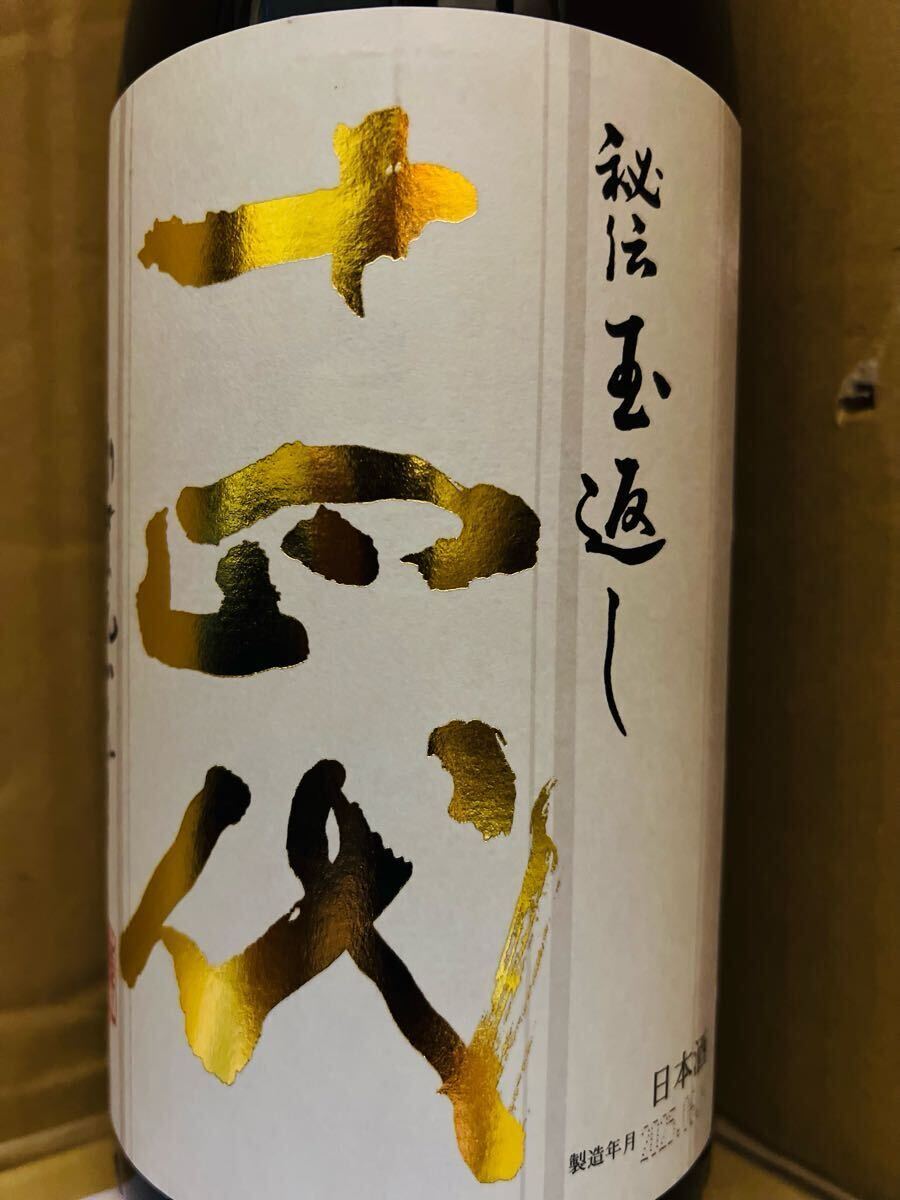 秘伝 玉返し
十四代
日本酒
製造年月 2025.06